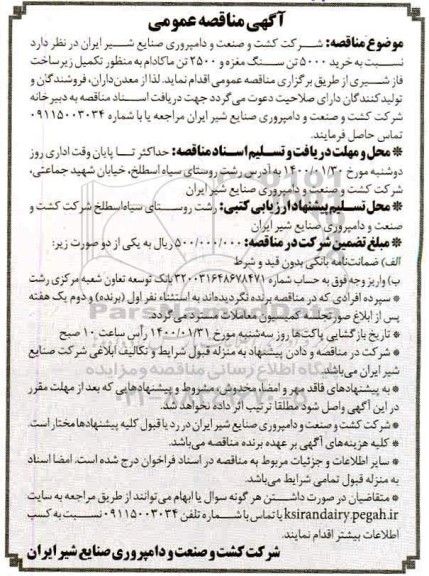 آگهی مناقصه عمومی
موضوع مناقصه: شرکت کشت و صنعت و دامپروری صنایع شیر ایران در نظر دارد
نسبت به خرید ۵۰۰۰ تن سنگ مغزه و ۲۵۰۰ تن ماکادام به منظور تکمیل زیرساخت
فاز شیری از طریق برگزاری مناقصه عمومی اقدام نماید. لذا از معدن‌داران، فروشندگان و
تولیدکنندگان دارای صلاحیت دعوت می‌گردد جهت دریافت اسناد مناقصه به دبیرخانه
شرکت کشت و صنعت و دامپروری صنایع شیر ایران مراجعه یا با شماره ۰۹۱۱۵۰۰۳۰۳۴
تماس حاصل فرمایند.
* محل و مهلت دریافت و تسلیم اسناد مناقصه: حداکثر تا پایان وقت اداری روز
دوشنبه مورخ ۱۴۰۰/۰۱/۳۰ به آدرس رشت روستای سیاه اسطلخ، خیابان شهید جماعتی،
شرکت کشت و صنعت و دامپروری صنایع شیر ایران
* محل تسلیم پیشنهاد ارزیابی کتبی: رشت روستای سیاه‌اسطلخ شرکت کشت و
صنعت و دامپروری صنایع شیر ایران
* مبلغ تضمین شرکت در مناقصه: ۵۰۰/۰۰۰/۰۰۰ ریال به یکی از دو صورت زیر:
الف) ضمانت‌نامه بانکی بدون قید و شرط
ب) واریز وجه فوق به حساب شماره ۳۲۰۰۳۱۶۴۸۶۷۸۴۷۱ بانک توسعه تعاون شعبه مرکزی رشت
* سپرده افرادی که در مناقصه برنده نگردیده‌اند به استثناء نفر اول (برنده) و دوم یک هفته
پس از ابلاغ صورتجلسه کمیسیون معاملات مسترد می‌گردد
* تاریخ بازگشایی پاکت‌ها روز سه‌شنبه مورخ ۱۴۰۰/۰۱/۳۱ رأس ساعت ۱۰ صبح
* شرکت در مناقصه و دادن پیشنهاد به منزله قبول شرایط و تکالیف ابلاغی شرکت صنایع
شیر ایران می‌باشد.
* به پیشنهادهای فاقد مهر و امضا، مخدوش، مشروط و پیشنهادهایی که بعد از مهلت مقرر
در این آگهی واصل شود مطلقا ترتیب اثر داده نخواهد شد.
* شرکت کشت و صنعت و دامپروری صنایع شیر ایران در رد یا قبول کلیه پیشنهادها مختار است.
* کلیه هزینه‌های آگهی بر عهده برنده مناقصه می‌باشد.
* سایر اطلاعات و جزئیات مربوط به مناقصه در اسناد فراخوان درج شده است. امضا اسناد
به منزله قبول تمامی شرایط می‌باشد.
* متقاضیان در صورت داشتن هر گونه سوال یا ابهام می‌توانند از طریق مراجعه به سایت
ksirandairy.pegah.ir یا تماس با شماره تلفن ۰۹۱۱۵۰۰۳۰۳۴ نسبت به کسب
اطلاعات بیشتر اقدام نمایند.
شرکت کشت و صنعت و دامپروری صنایع شیر ایران